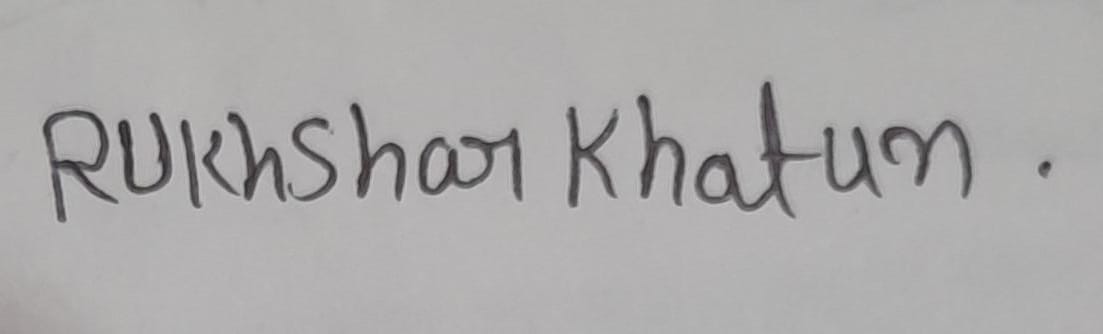 RUKhShar Khatun.